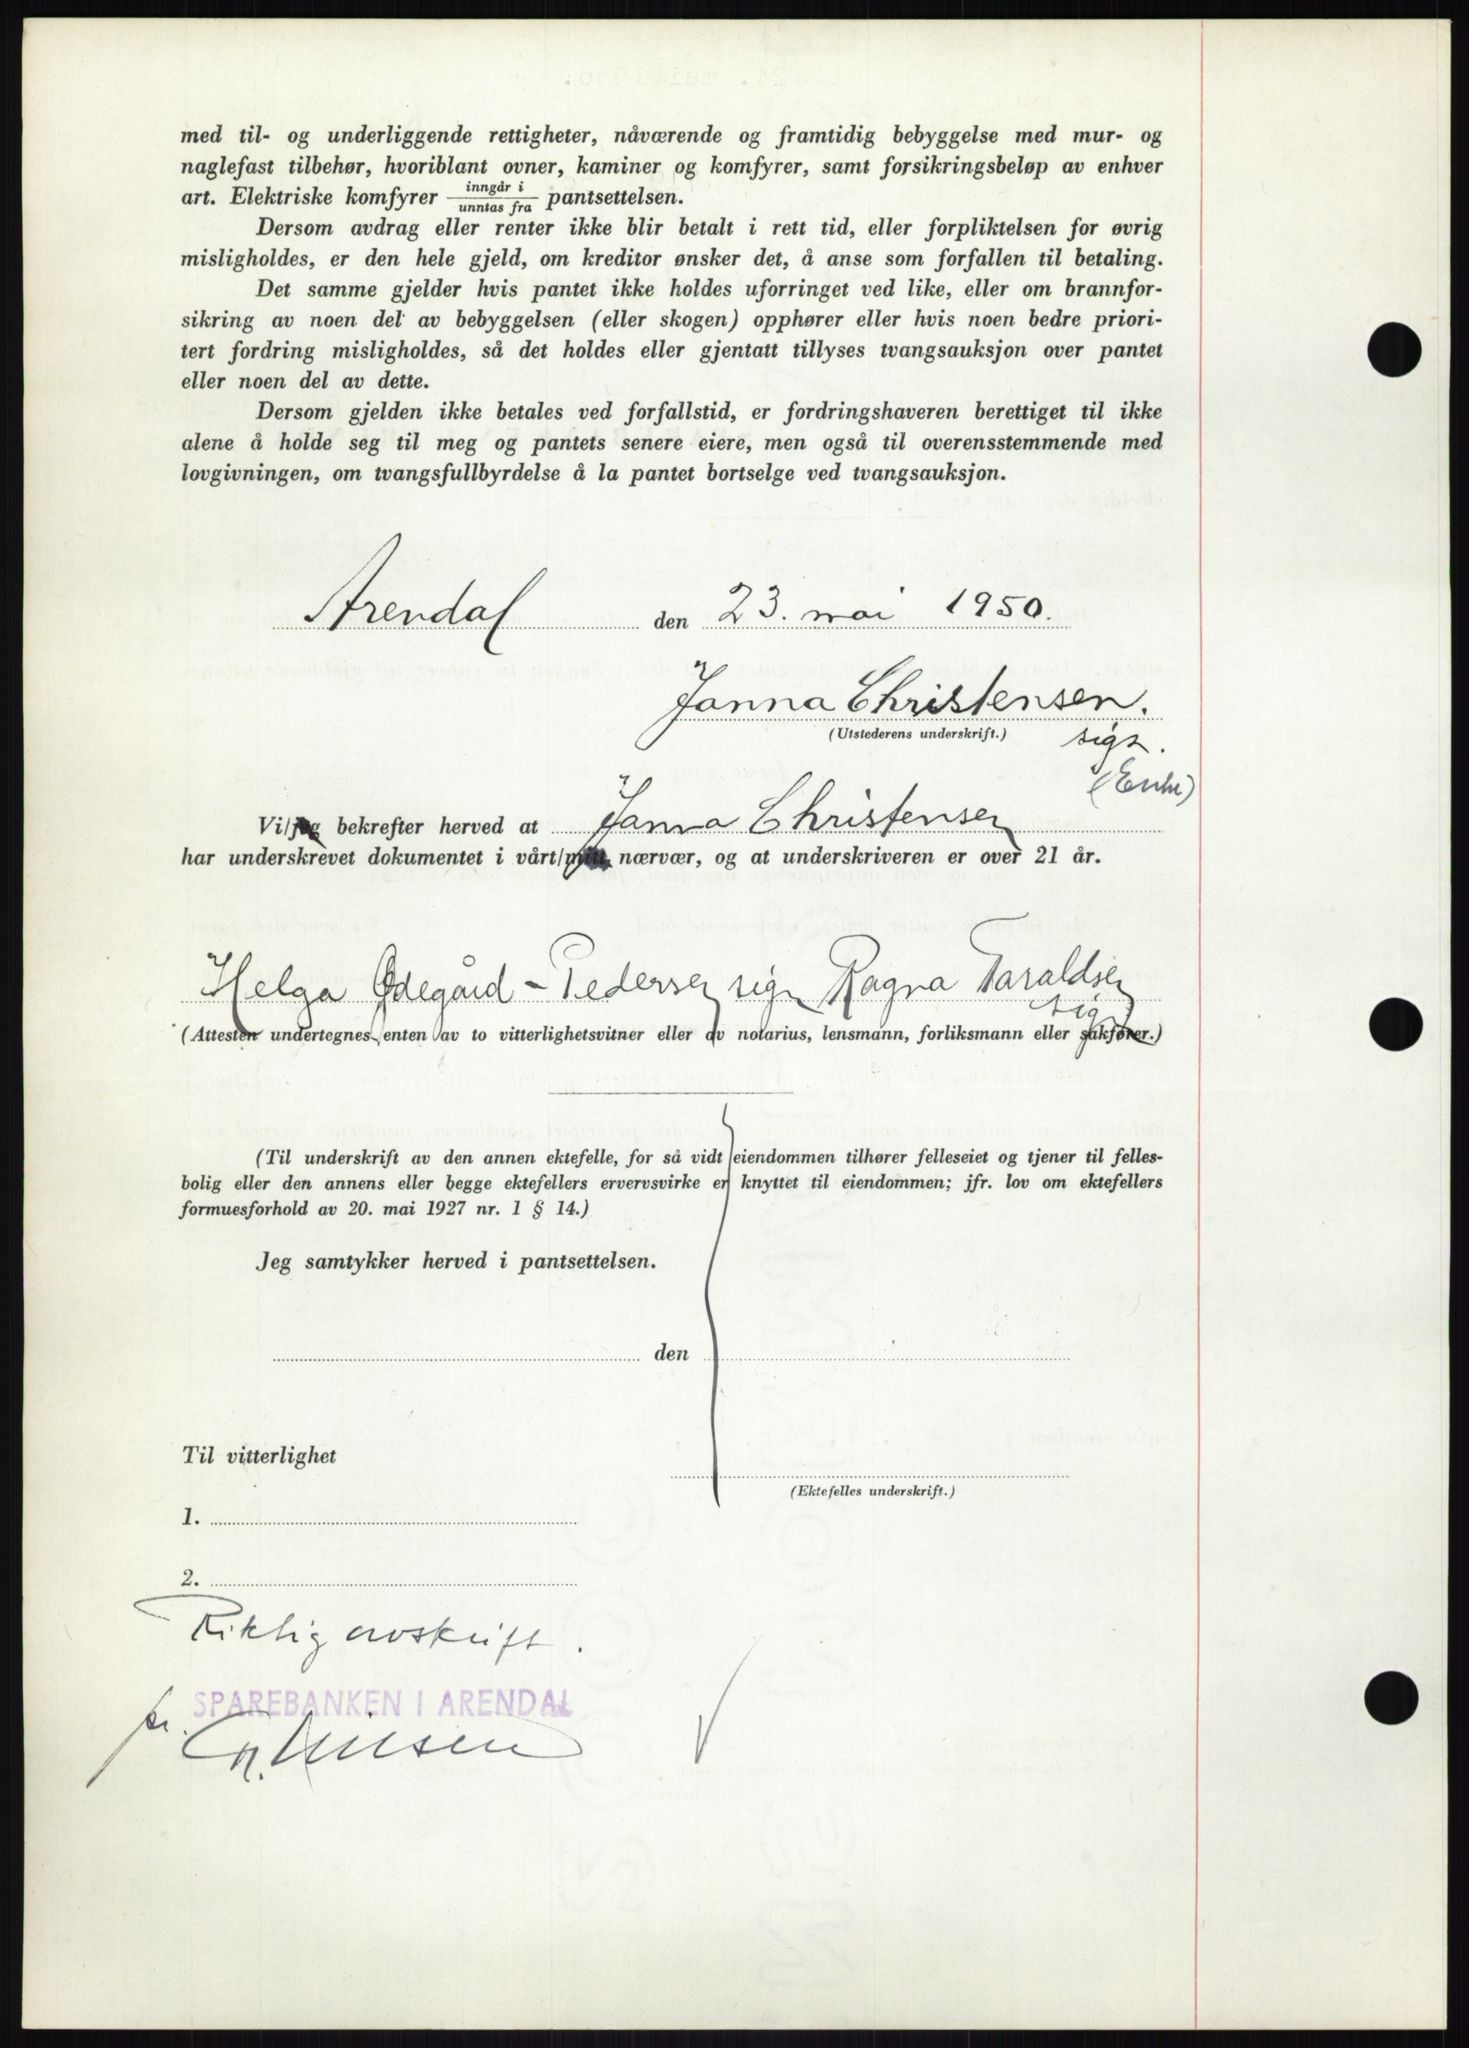 med til- og underliggende rettigheter, nåværende og framtidig bebyggelse med mur- og
naglefast tilbehør, hvoriblant ovner, kaminer og komfyrer, samt forsikringsbeløp av enhver
art. Elektriske komfyrer inngår i / unntas fra pantsettelsen.
Dersom avdrag eller renter ikke blir betalt i rett tid, eller forpliktelsen for øvrig
misligholdes, er den hele gjeld, om kreditor ønsker det, å anse som forfallen til betaling.
Det samme gjelder hvis pantet ikke holdes uforringet ved like, eller om brannfor-
sikring av noen del av bebyggelsen (eller skogen) opphører eller hvis noen bedre priori-
tert fordring misligholdes, så det holdes eller gjentatt tillyses tvangsauksjon over pantet
eller noen del av dette.
Dersom gjelden ikke betales ved forfallstid, er fordringshaveren berettiget til ikke
alene å holde seg til meg og pantets senere eiere, men også til overensstemmende med
lovgivningen, om tvangsfullbyrdelse å la pantet bortselge ved tvangsauksjon.
Arendal den 23. mai 1950.
Janna Christensen.
(Utstederens underskrift.) sign.
(Enke)
Vi/jeg bekrefter herved at Janna Christensen
har underskrevet dokumentet i vårt/mitt nærvær, og at underskriveren er over 21 år.
Helga Ødegård - Pedersen sign Ragna Taraldsen
sign
(Attesten undertegnes enten av to vitterlighetsvitner eller av notarius, lensmann, forliksmann eller sakfører.)
(Til underskrift av den annen ektefelle, for så vidt eiendommen tilhører felleseiet og tjener til felles-
bolig eller den annens eller begge ektefellers ervervsvirke er knyttet til eiendommen; jfr. lov om ektefellers
formuesforhold av 20. mai 1927 nr. 1 § 14.)
Jeg samtykker herved i pantsettelsen.
den
Til vitterlighet
(Ektefelles underskrift.)
1.
2.
Riktig avskrift.
SPAREBANKEN I ARENDAL
pr.